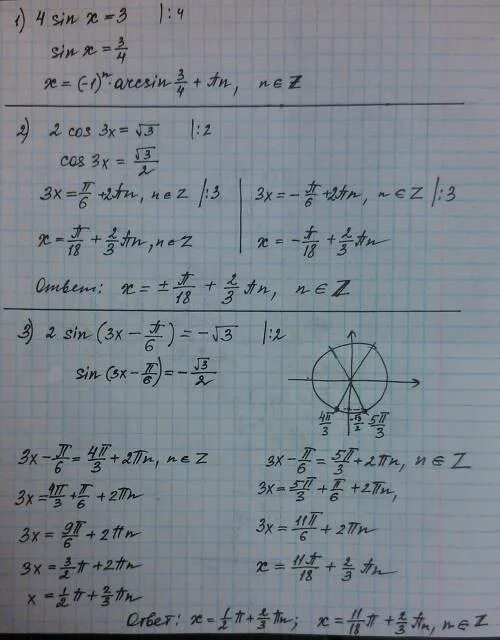 1) 4 sin x = 3 |:4
sin x = 3/4
x = (-1)ⁿ · arcsin 3/4 + πn, n ∈ Z
2) 2 cos 3x = √3 |:2
cos 3x = √3/2
3x = π/6 + 2πn, n ∈ Z |:3
x = π/18 + 2/3 πn, n ∈ Z
3x = -π/6 + 2πn, n ∈ Z |:3
x = -π/18 + 2/3 πn
Ответ: x = ± π/18 + 2/3 πn, n ∈ Z
3) 2 sin (3x - π/6) = -√3 |:2
sin (3x - π/6) = -√3/2
4π/3 -√3/2 5π/3
3x - π/6 = 4π/3 + 2πn, n ∈ Z
3x = 4π/3 + π/6 + 2πn
3x = 9π/6 + 2πn
3x = 3/2 π + 2πn
x = 1/2 π + 2/3 πn
3x - π/6 = 5π/3 + 2πn, n ∈ Z
3x = 5π/3 + π/6 + 2πn,
3x = 11π/6 + 2πn
x = 11π/18 + 2/3 πn
Ответ: x = 1/2 π + 2/3 πn; x = 11/18 π + 2/3 πn, n ∈ Z